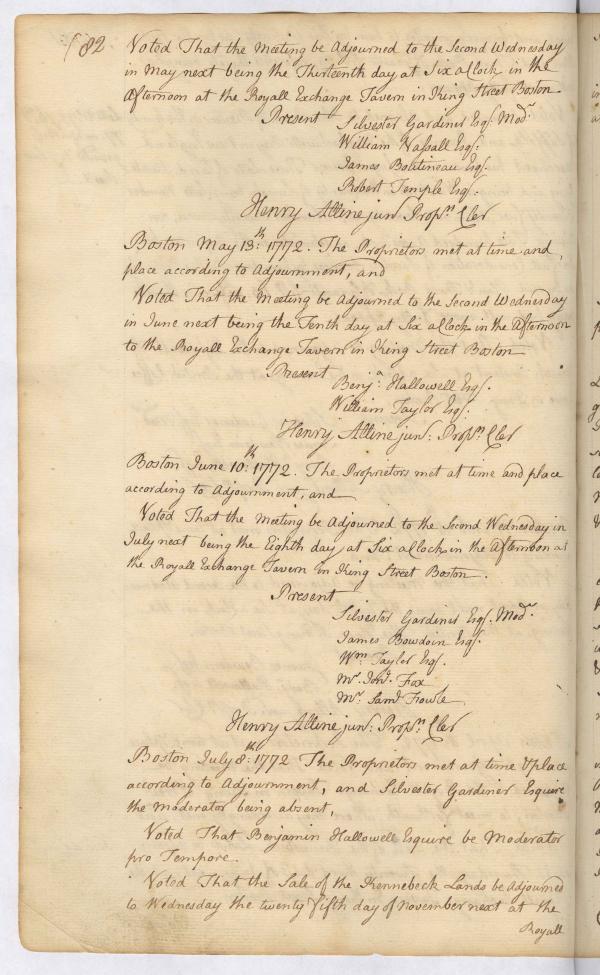 182
Voted That the Meeting be Adjourned to the Second Wednesday
in May next being the Thirteenth day at Six aClock in the
Afternoon at the Royall Exchange Tavern in King Street Boston
Present
Silvester Gardiner Esqr. Modr.
William Vassall Esqr:
James Boutineau Esqr.
Robert Temple Esqr:
Henry Alline junr Proprs Cler
Boston May 13th: 1772. The Proprietors met at time and
place according to Adjournment, and
Voted That the Meeting be Adjourned to the Second Wednesday
in June next being the Tenth day at Six aClock in the Afternoon
to the Royall Exchange Tavern in King Street Boston
Present
Benja: Hallowell Esqr.
William Taylor Esqr.
Henry Alline junr: Proprs Cler
Boston June 10th: 1772. The Proprietors met at time and place
according to Adjournment, and
Voted That the Meeting be Adjourned to the Second Wednesday in
July next being the Eighth day at Six aClock in the Afternoon at
the Royall Exchange Tavern in King Street Boston.
Present
Silvester Gardiner Esqr. Modr.
James Bowdoin Esqr.
Wm Taylor Esqr.
Mr. Jno. Fox
Mr. Saml Fowle
Henry Alline junr: Proprs Cler
Boston July 8th: 1772 The Proprietors met at time & place
according to Adjournment, and Silvester Gardiner Esquire
the Moderator being absent,
Voted That Benjamin Hallowell Esquire be Moderator
pro Tempore.
Voted That the Sale of the Kennebeck Lands be Adjourned
to Wednesday the twenty fifth day of November next at the
Royall